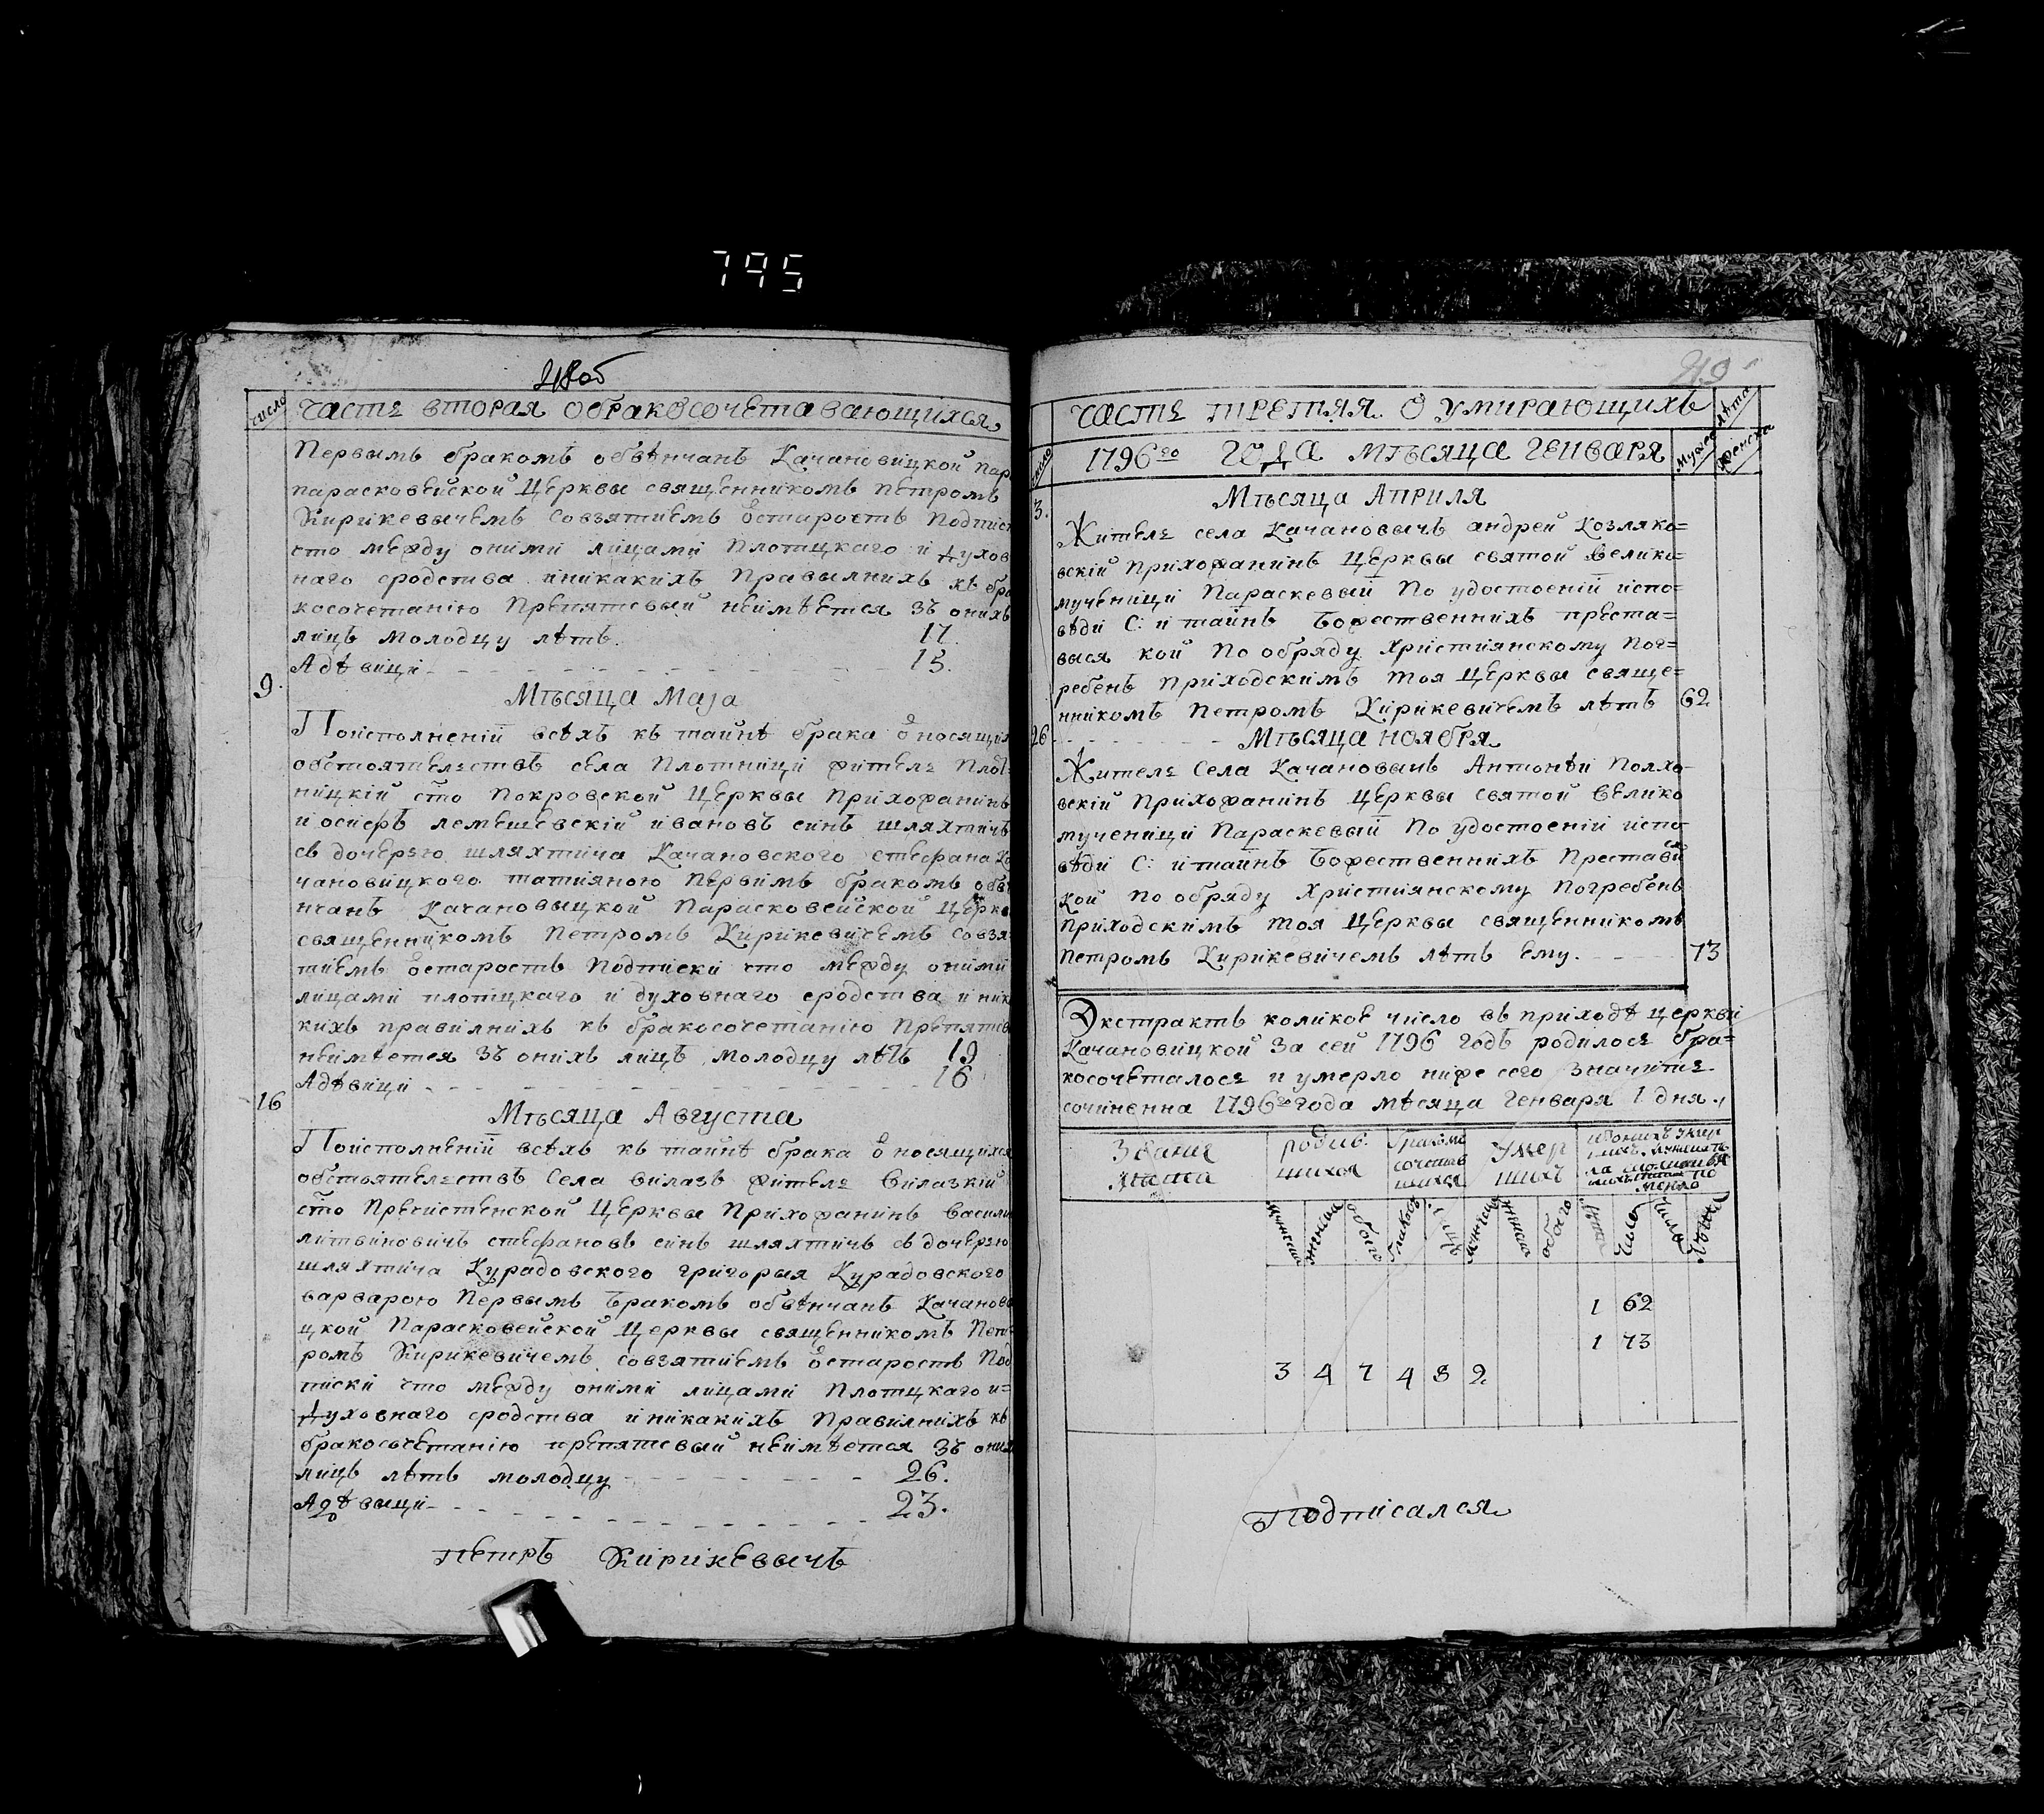 795
48об
число
часть вторая о бракосочетавающихся
Первымъ бракомъ обвѣнчанъ Качановицкой пар
парасковейской церквы священникомъ Петромъ
Кирикевычемъ совзятиемъ ѿстаростъ Подпис
что между оними лицами Плотцкаго и духов
наго сродства иникакихъ Правылнихъ къ бра
косочетанію Препятсвый неимѣется зъ онихъ
лицъ молодцу лѣтъ 17.
А дѣвици 15.
9.
Мѣсяца Маја
Поисполнений всѣхъ къ тайнѣ брака ѿносящих
обстоятельствъ села Плотници жителе Плот
ницкій сто Покровской церквы Прихожанинъ
иосифъ лемешевскій ивановъ синъ шляхтичъ
съ дочерзю шляхтича Качановского стефана Ка
чановицкого татияною первимъ бракомъ обвѣ
нчанъ Качановыцкой Парасковейской церкв
священникомъ Петромъ Кирикевичемъ совзя
тиемъ ѿстаростъ Подписки что между оними
лицами плотцкаго и духовнаго сродства и ник
кихъ правилнихъ къ бракосочетанію Препятсв
неимѣется зъ онихъ лицъ молодцу лѣтъ 19
А дѣвици 16
16
Мѣсяца Августа
Поисполнений всѣхъ къ тайнѣ брака ѿносящихся
обстоятелествъ Села вилазъ жителе вилазкій
сто Пречистенской Церквы Прихожанинъ васили
литвиновичъ стефановъ синъ шляхтичъ съ дочерзю
шляхтича Курадовского григорыя Курадовского
варварою Первымъ Бракомъ обвѣнчанъ Качанови
цкой Парасковейской церквы священникомъ Пет
ромъ Кирикевичемъ совзятиемъ ѿстаростъ Под
писки что между оними лицами Плотцкаго и=
духовнаго сродства иникакихъ Правилнихъ къ
бракосочетанію препятсвый неимѣется зъ оних
лицъ лѣтъ молодцу 26.
А дѣвыци 23.
Петръ Кирикевычъ
49
часть третяя о умирающихъ
лѣта
число
1796го года мѣсяца генваря
мужеск
женска
3.
Мѣсяца Априля
Жителе села Качановычъ андрей Козляко=
вскій Прихожанинъ церквы святой велико=
мученици Параскевый По удостоеній испо=
вѣди С: и тайнъ Божественнихъ преста=
выся кой по обряду Християнскому Пог=
ребенъ приходскимъ тоя церквы свяще=
нникомъ Петромъ Кирикевичемъ лѣтъ 62
26
Мѣсяца ноября
Жителе Села Качановычъ Антонѣй Полхо
вскій Прихожанинъ церквы святой велико
мученици Параскевый По удостоеній испо
вѣди С: и тайнъ Божественнихъ Преставися
кой по обряду Християнскому Погребенъ
Приходскимъ тоя церквы священникомъ
Петромъ Кирикевичемъ лѣтъ ему. 73
Экстрактъ коликое число въ приходѣ церкви
Качановицкой за сей 1796 годъ родилося бра=
косочеталося и умерло ниже сего значитъ
сочиненна 1796го года мѣсяца генваря 1 дня.
Звания родив: бракомъ Умер
шихся сочетав шихъ
шихся
обоего обоего
1 62
1 73
3 4 7 4 8 2
Подписался